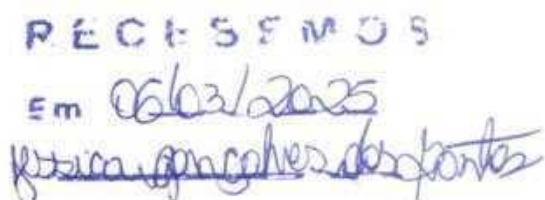 RECEBEMOS
Em 06/03/2025
Jessica Gonçalves dos Santos